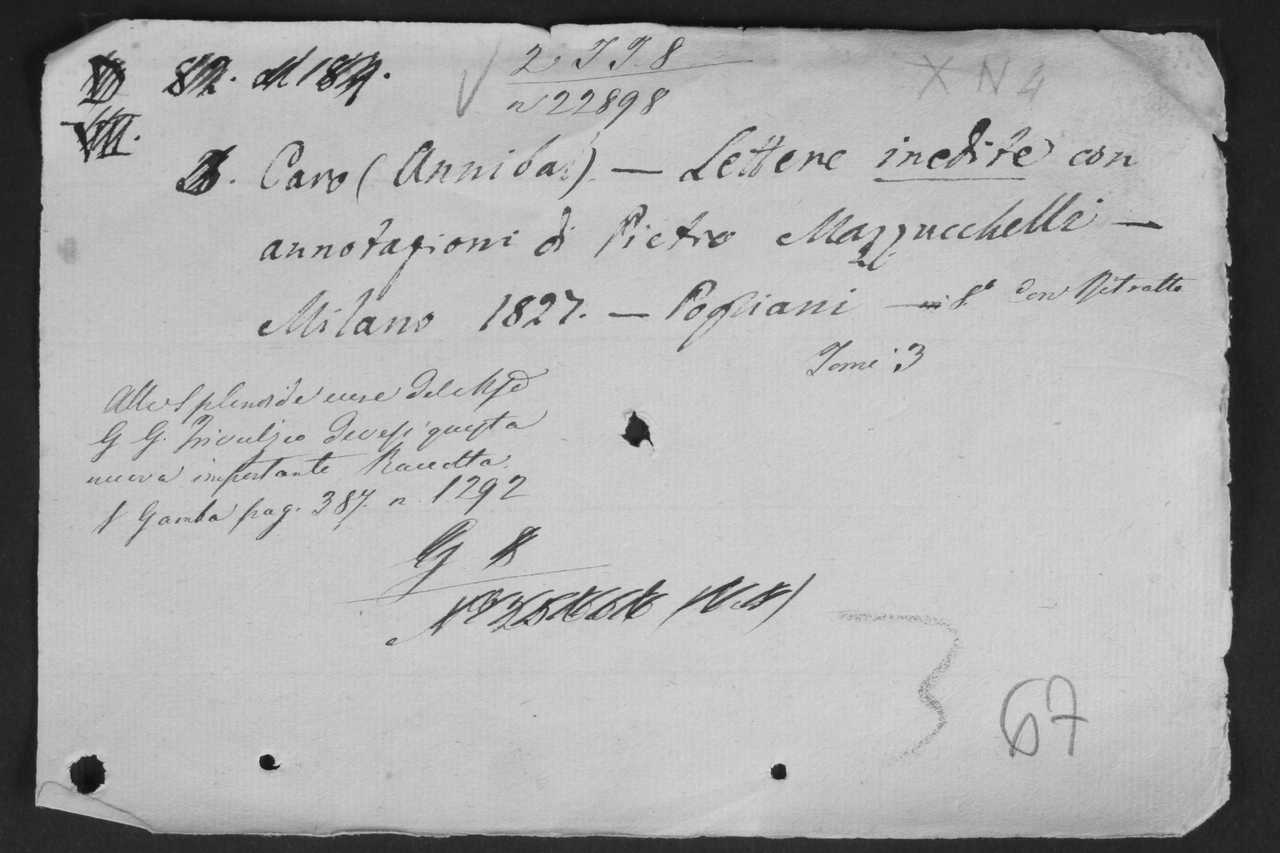 2 T T. 8
n 22898
X N 4
Caro (Annibal). — Lettere inedite con
annotazioni di Pietro Mazzucchelli —
Milano 1827. — Pogliani — 8° Con Ritratto
Tomi 3
Alle splendide cure del
G G. Trivulzio devesi questa
nuova importante Raccolta.
Gamba pag. 387. n. 1292
G
3
67